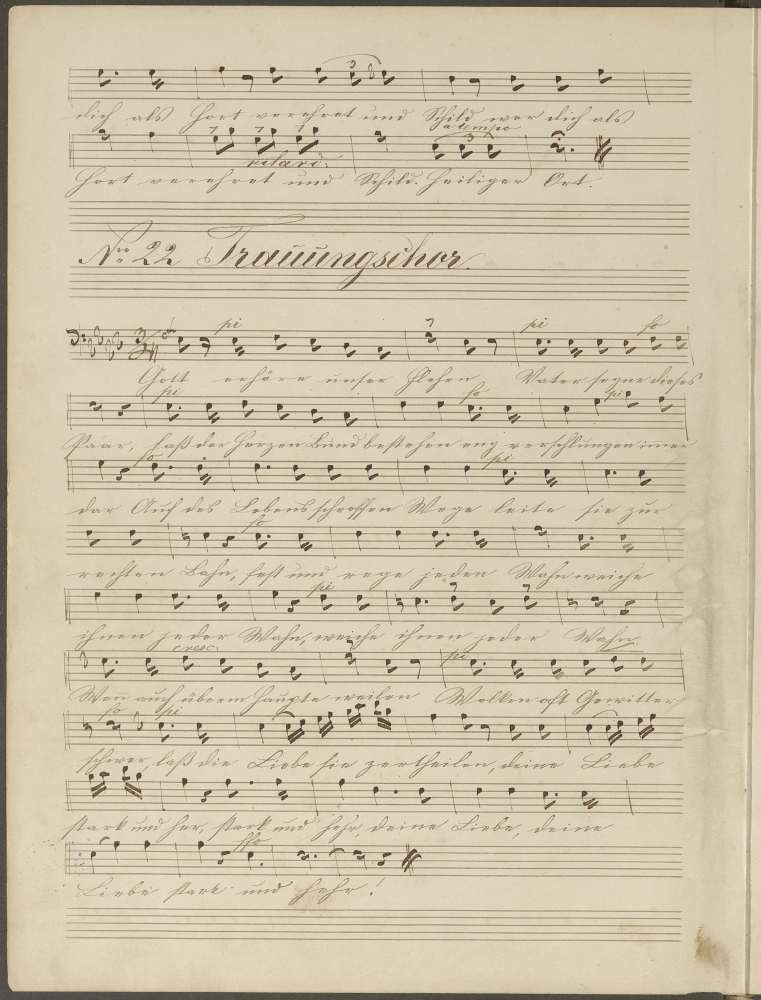 dich als Hort verehret und Schild wer dich als
a tempo
retard:
Hort verehret und Schild. Heiliger Ort.
No. 22 Trauungschor.
pi pi fo
Gott erhöre unser Flehen Vater segne dieses
pi fo pi
Paar, laß der Herzen Bund bestehen eng verschlungen immer
fo pi
dar Auf des Lebens schroffen Wege leite sie zur
fo
rechten Bahn, fest und rege jeden Wahn weiche
pi
ihnen jeder Wahn, weiche ihnen jeder Wahn.
cresc: pi
Wenn auch überm Haupte weilen Wolken oft Gewitter
fo pi
schwer, laß die Liebe sie zertheilen, deine Liebe
stark und her, stark und hehr, deine Liebe, deine
ffo
Liebe stark und hehr!